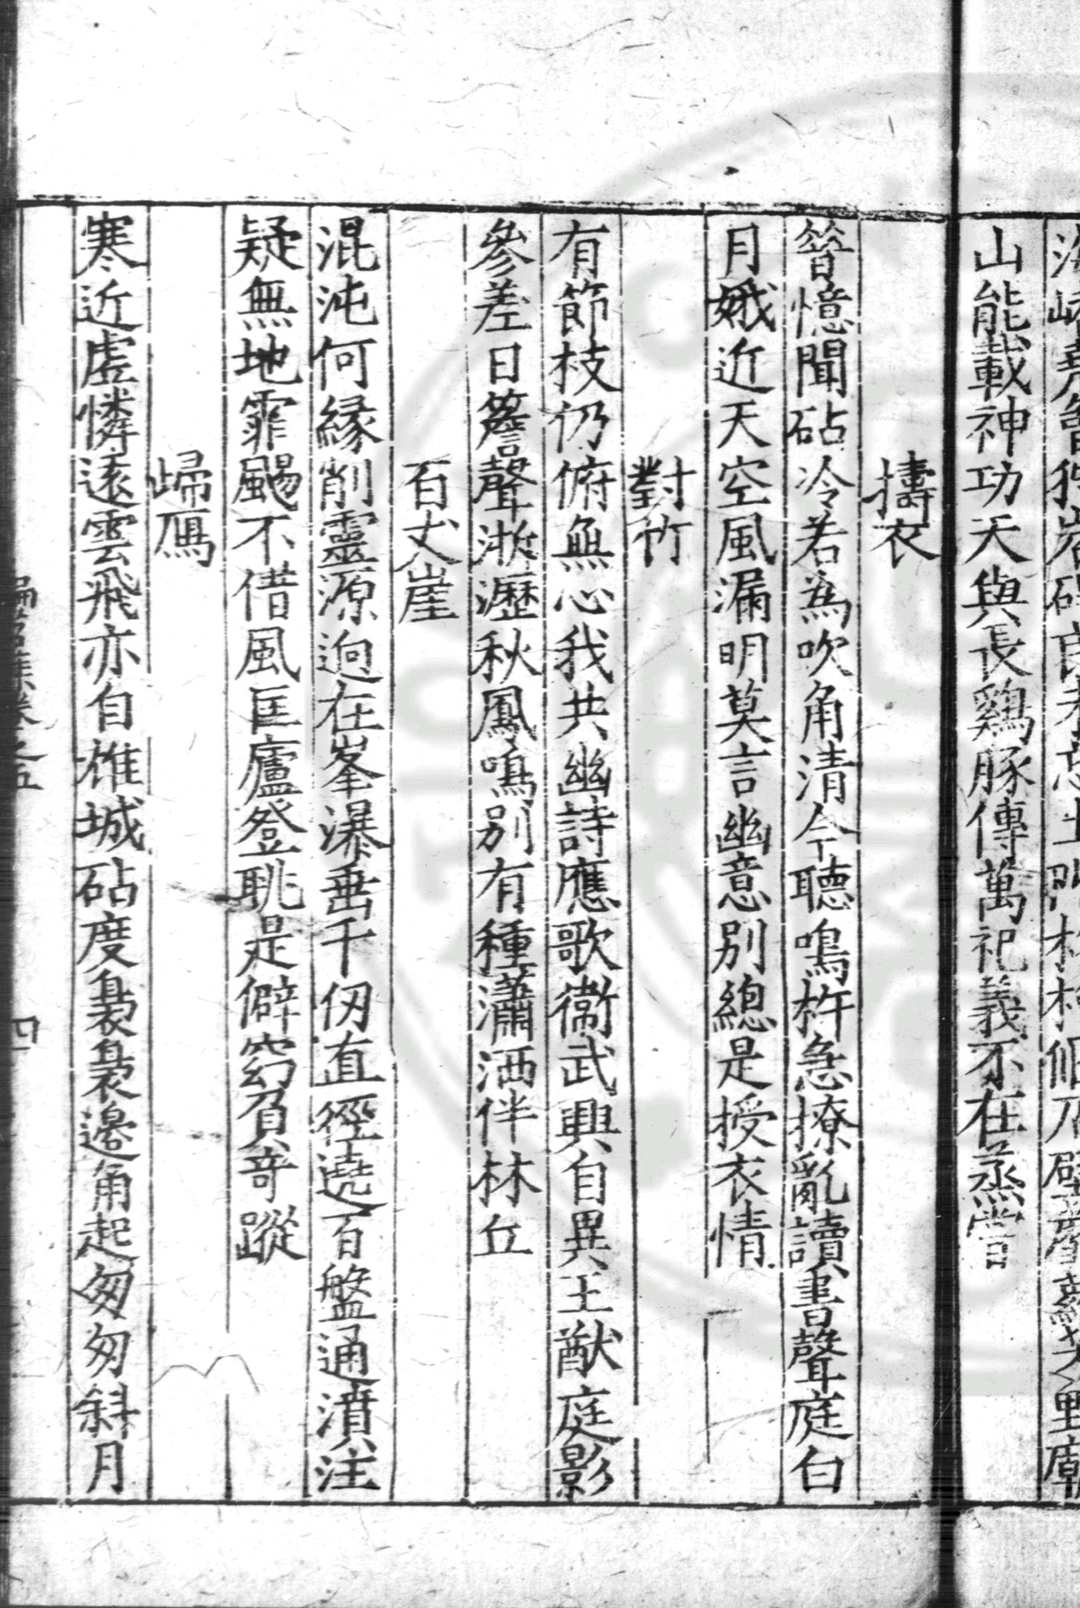 山能載神功天與長鷄豚傳萬祀義不在蒸嘗
擣衣
昝憶聞砧冷若為吹角清今聽鳴杵急撩亂讀書聲庭白
月娥近天空風漏明莫言幽意別總是授衣情
對竹
有節枝仍俯無心我共幽詩應歌衛武興自異王猷庭影
參差日簷聲淅瀝秋鳳鳴別有種瀟洒伴林丘
百丈崖
混沌何緣削靈源逈在峯瀑垂千仞直徑遶百盤通濆注
疑無地霏颺不借風匡廬登眺是僻窈負竒蹤
歸鴈
寒近虛憐遠雲飛亦自雄城砧度裊裊邊角起匆匆斜月
四